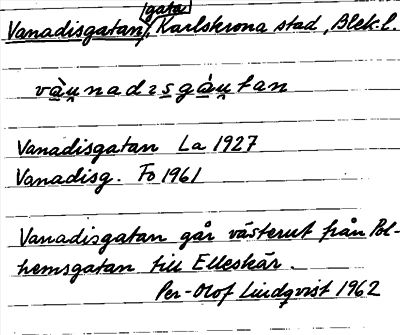 gata
Vanadisgatan, Karlskrona stad, Blek. l.
Vanadisgatan La 1927
Vanadisg. Fo 1961
Vanadisgatan går västerut från Pol-
hemsgatan till Elleskär.
Per-Olof Lindqvist 1962